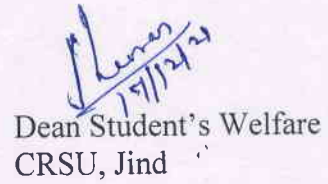 17/12/21
Dean Student's Welfare
CRSU, Jind